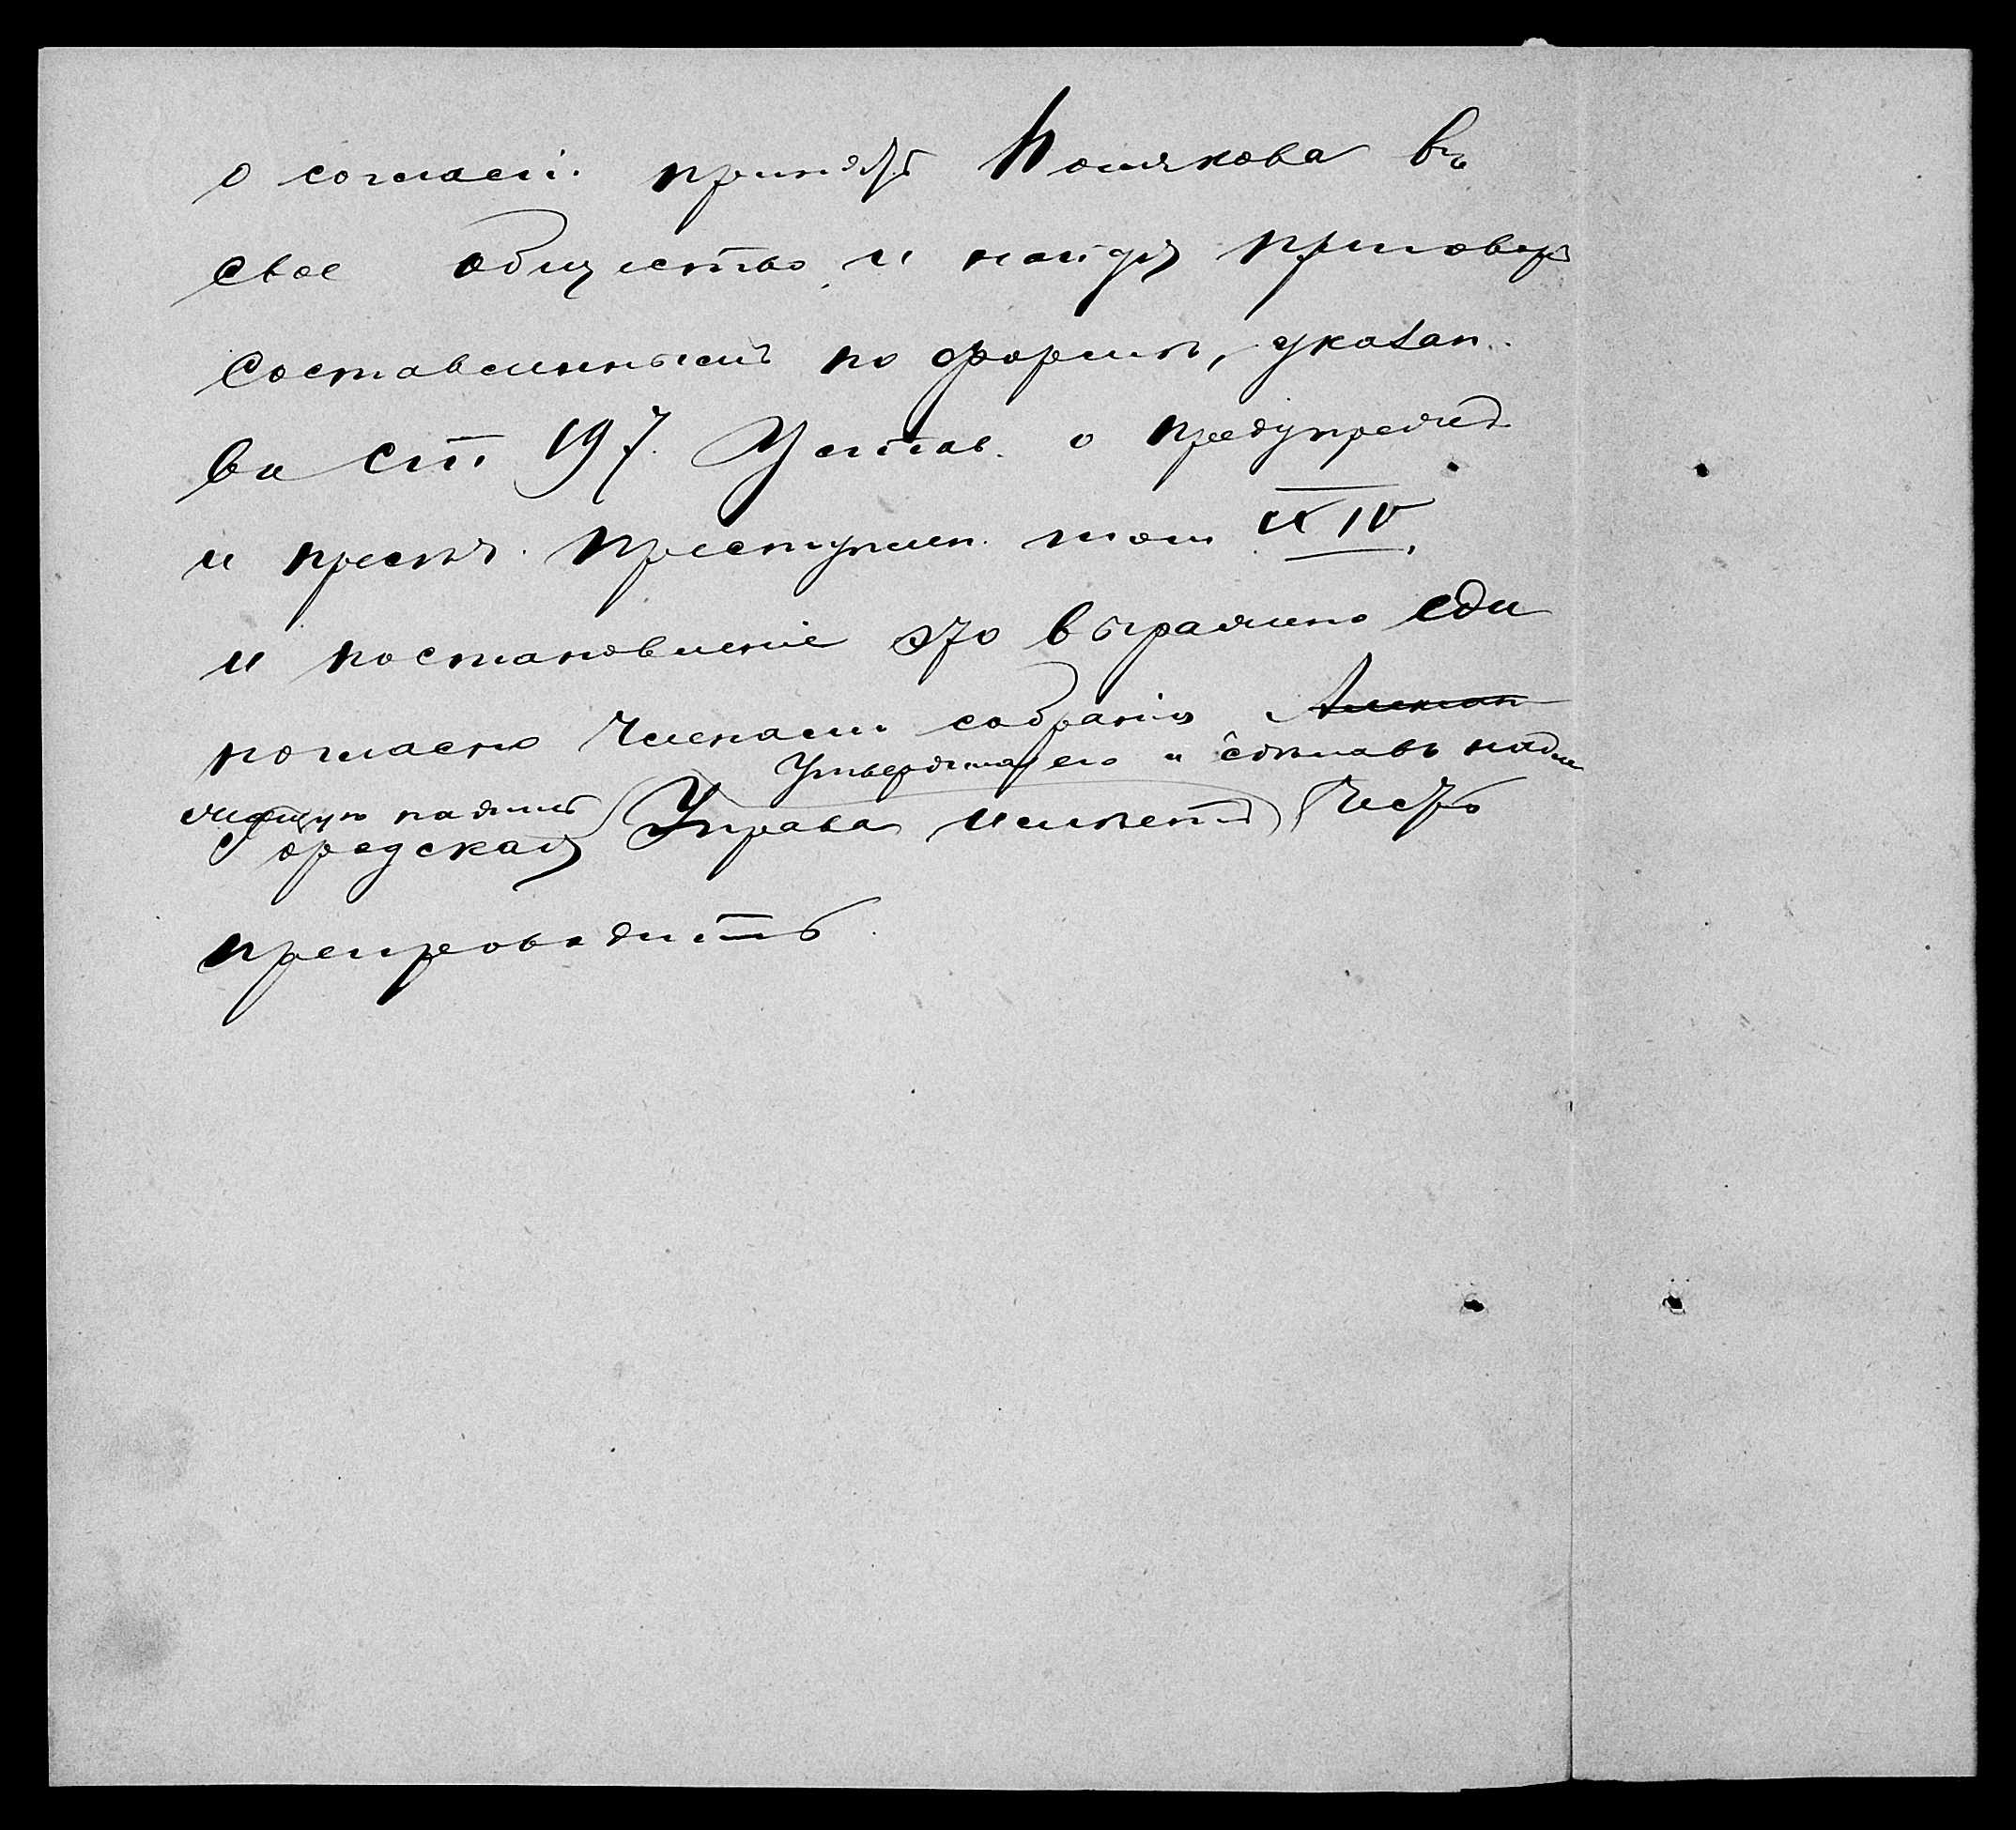 о согласіи принять Полякова въ
свое общество, и найдя приговоръ
составленнымъ по формѣ, указан.
въ ст. 197. Устав. о предупрежд
и пресѣч. преступлен. том XIV.
и постановленіе это выражено еди
ногласно членами собранія
утвердила его и сдѣлавъ надле
жащую надпись
Городская Управа имѣетъ честь
препроводить.